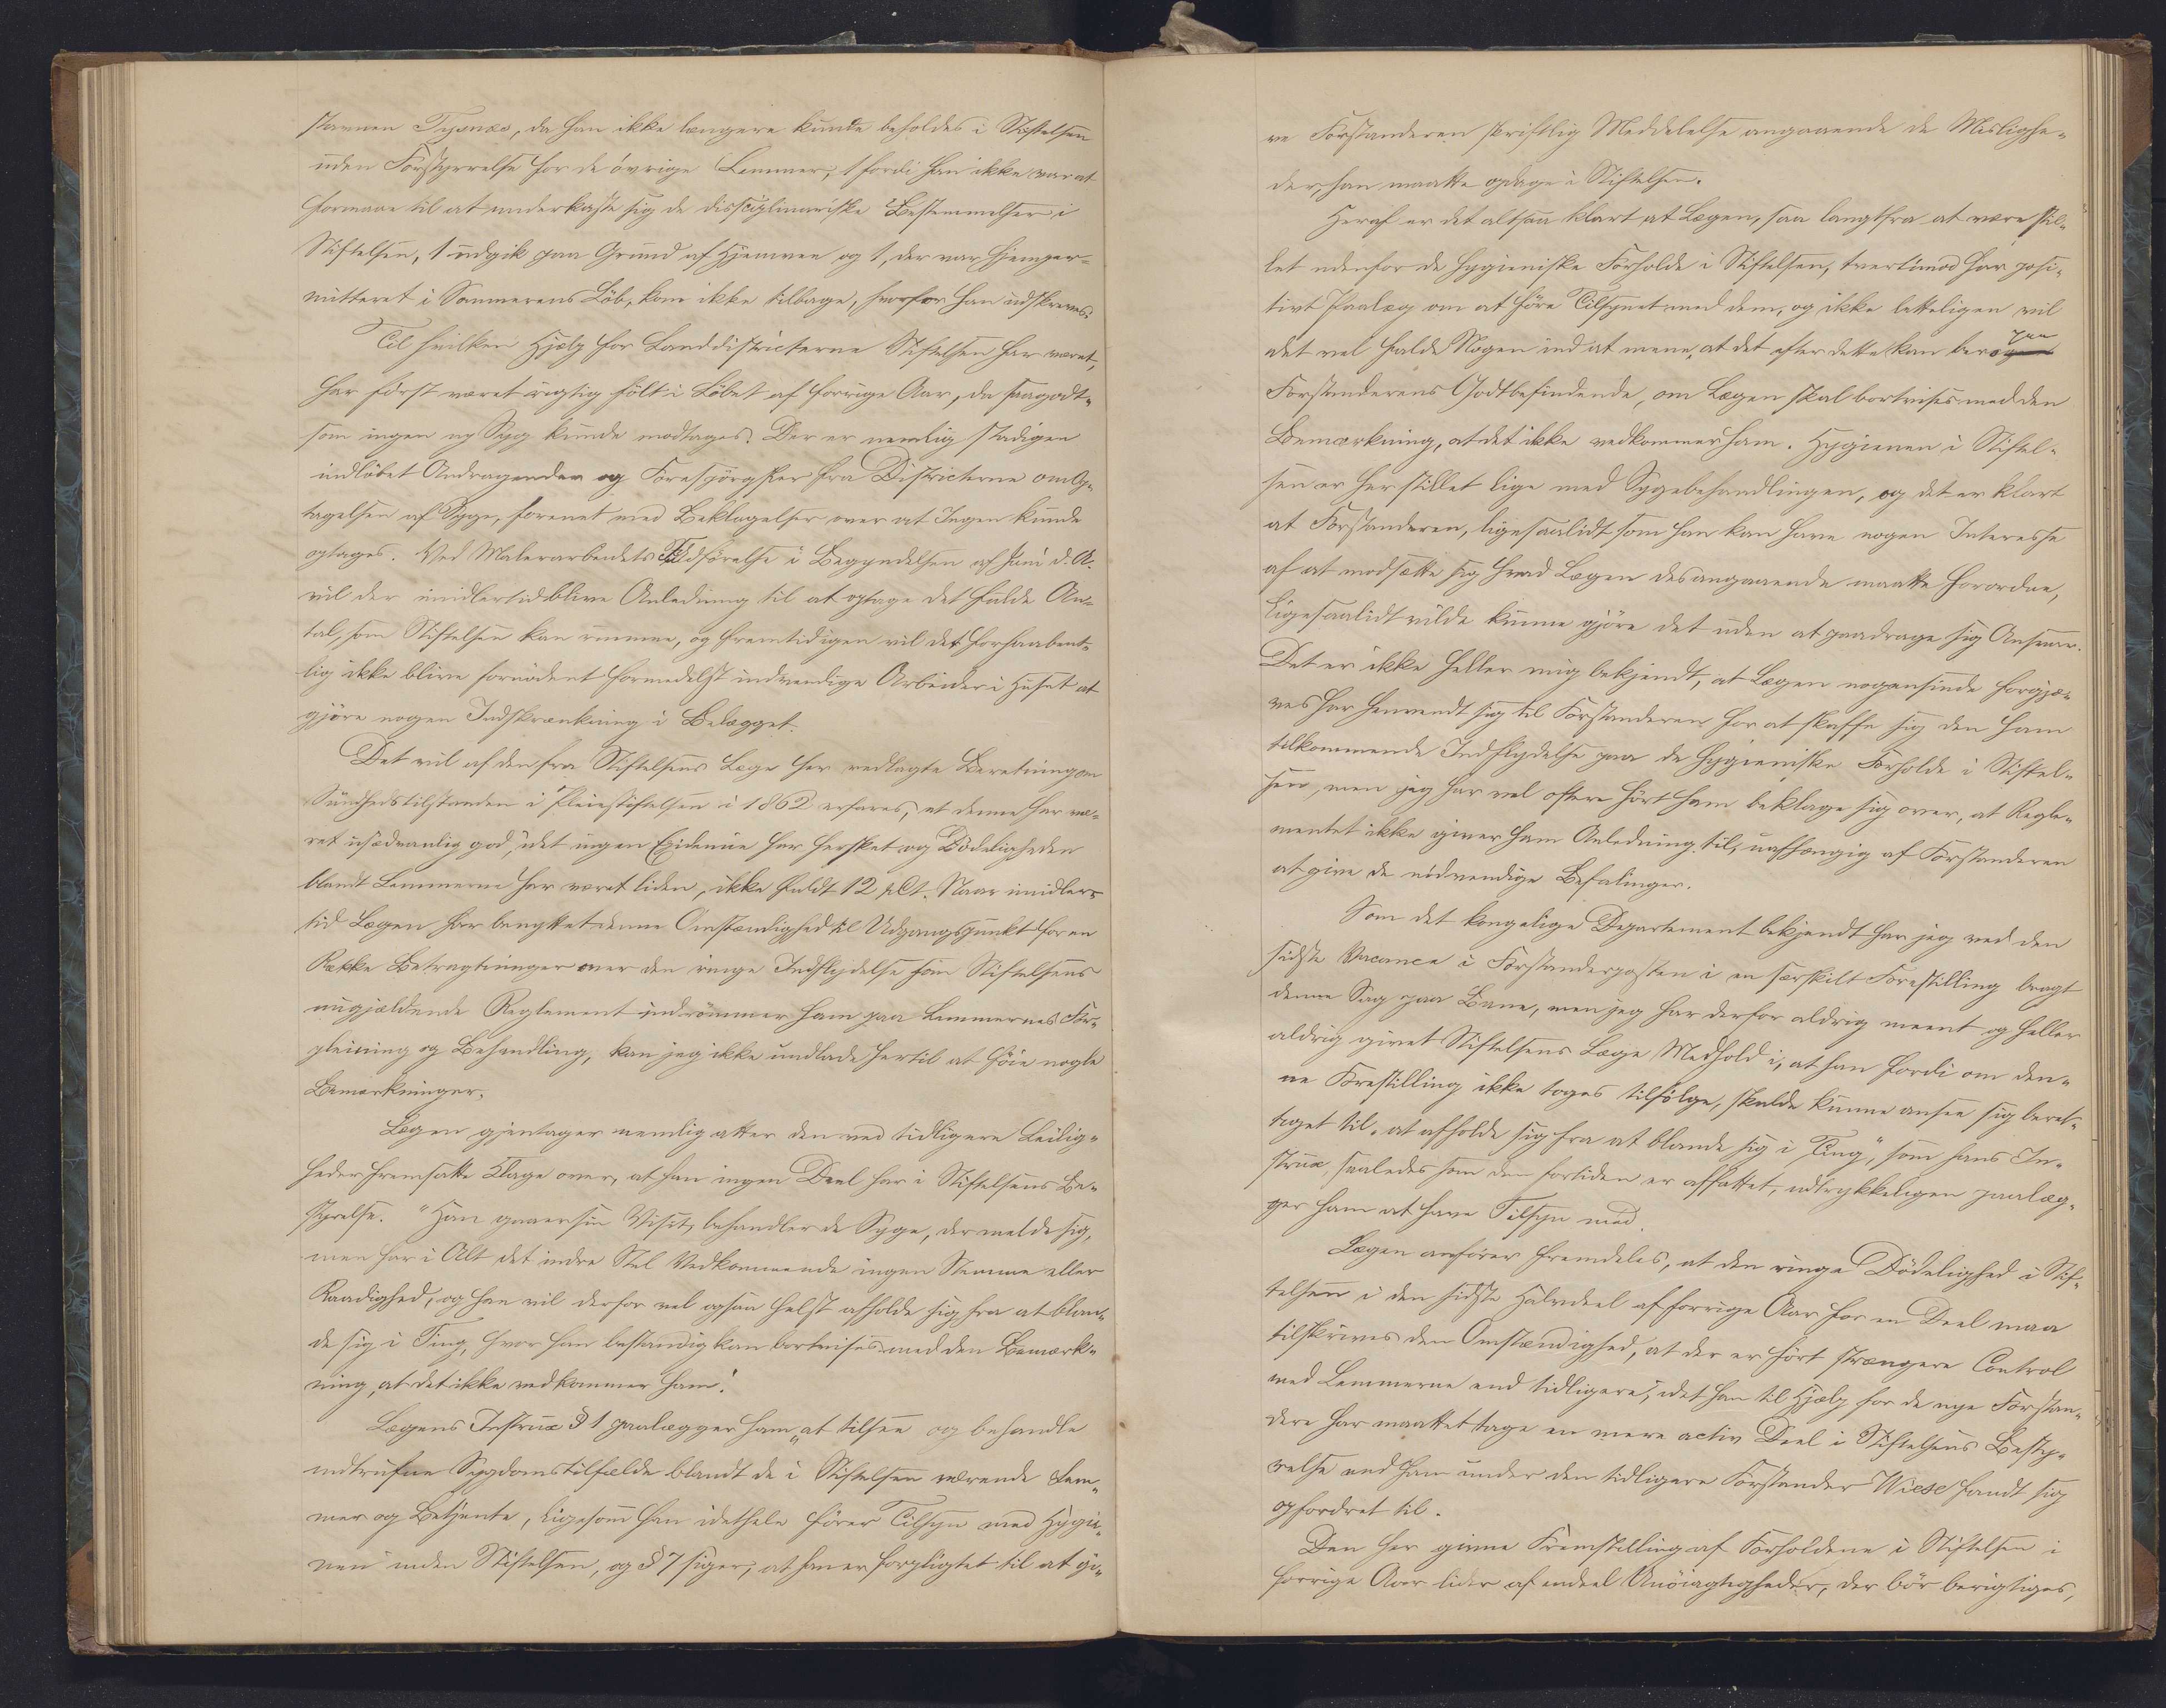 stavnen Tysnæs, da han ikke længere kunde beholdes i Stiftelsen
uden Forstyrrelse for de øvrige Lemmer, 1 fordi han ikke var at
formaae til at underkaste sig de disciplinariske Bestemmelser i
Stiftelsen, 1 udgik paa Grund af Hjemvee og 1, der var hjemper-
mitteret i Sommerens Løb, kom ikke tilbage, hvorfor han udskreves.
Til hvilken Hjælp for Landdistricterne Stiftelsen har været,
har først været rigtig følt i Løbet af forrige Aar, da saagodt-
som ingen ny Syg kunde modtages. Der er nemlig stadigen
indløbet Andragender og Forespørgsler fra Districterne om Op-
tagelsen af Syge, forenet med Beklagelser over at Ingen kunde
optages. Ved Malerarbeidets Udførelse i Begyndelsen af Juni d. A.
vil der imidlertid blive Anledning til at optage det fulde An-
tal, som Stiftelsen kan rumme, og fremtidigen vil det forhaabent-
lig ikke blive fornødent formedelst indvendige Arbeider i Huset at
gjøre nogen Indskrænkning i Belægget.
Det vil af den fra Stiftelsens Læge her vedlagte Beretning om
Sundhedstilstanden i Pleiestiftelsen i 1862 erfares, at denne har væ-
ret usædvanlig god, idet ingen Epidemie har hersket og Dødeligheden
blandt Lemmerne har været liden, ikke fuldt 12 pCt. Naar imidler-
tid Lægen har benyttet denne Omstændighed til Udgangspunkt for en
Række Betragtninger over den ringe Indflydelse som Stiftelsens
nugjældende Reglement indrømmer ham paa Lemmernes For-
pleining og Behandling, kan jeg ikke undlade hertil at føie nogle
Bemærkninger.
Lægen gjentager nemlig atter den ved tidligere Leilig-
heder fremsatte Klage over, at han ingen Deel har i Stiftelsens Be-
styrelse. "Han gaaer sin Visit, behandler de Syge, der melde sig,
men har i Alt det indre Stel Vedkommende ingen Stemme eller
Raadighed, og han vil derfor vel ogsaa helst afholde sig fra at blan-
de sig i Ting, hvor han bestandig kan bortvises med den Bemærk-
ning, at det ikke vedkommer ham".
Lægens Instrux § 1 paalægger ham „at tilsee og behandle
indtrufne Sygdomstilfælde blandt de i Stiftelsen værende Lem-
mer og Betjente, ligesom han idethele fører Tilsyn med Hygie-
nen inden Stiftelsen, og § 7 siger, at han er forpligtet til at gi-
ve Forstanderen skriftlig Meddelelse angaaende de Mislighe-
der, han maatte opdage i Stiftelsen.
Heraf er det altsaa klart at Lægen, saa langtfra at være stil-
let udenfor de hygieniske Forholde i Stiftelsen, tvertimod har posi-
tivt Paalæg om at føre Tilsynet med dem, og ikke letteligen vil
det vel falde Nogen ind at mene, at det efter dette kan bero paa
Forstanderens Godtbefindende, om Lægen skal bortvises med den
Bemærkning, at det ikke vedkommer ham. Hygienen i Stiftel-
sen er her stillet lige med Sygebehandlingen, og det er klart
at Forstanderen, ligesaalidt som han kan have nogen Interesse
af at modsætte sig hvad Lægen desangaaende maatte forordne,
ligesaalidt vilde kunne gjøre det uden at paadrage sig Ansvar.
Det er ikke heller mig bekjendt, at Lægen nogensinde forgjæ-
ves har henvendt sig til Forstanderen for at skaffe sig den ham
tilkommende Indflydelse paa de hygieniske Forholde i Stiftel-
sen, men jeg har vel oftere hørt ham beklage sig over, at Regle-
mentet ikke giver ham Anledning til, uafhængig af Forstanderen
at give de nødvendige Befalinger.
Som det kongelige Departement bekjendt har jeg ved den
sidste Vacance i Forstanderposten i en særskilt Forestilling bragt
denne Sag paa Bane, men jeg har derfor aldrig meent og heller
aldrig givet Stiftelsens Læge Medhold i, at han fordi om den-
ne Forestilling ikke toges tilfølge, skulde kunne ansee sig beret-
tiget til „at afholde sig fra at blande sig i Ting", som hans In-
strux, saaledes som den fortiden er affattet, udtrykkeligen paalæg-
ger ham at have Tilsyn med.
Lægen anfører fremdeles, at den ringe Dødelighed i Stif-
telsen i den sidste Halvdeel af forrige Aar for en Deel maa
tilskrives den Omstændighed, at der er ført strængere Control
med Lemmerne end tidligere, idet han til Hjælp for de nye Forstan-
dere har maattet tage en mere activ Deel i Stiftelsens Besty-
relse end ham under den tidligere Forstander Wiese fandt sig
opfordret til.
Den her givne Fremstilling af Forholdene i Stiftelsen i
forrige Aar lider af endeel Unøiagtigheder, der bør berigtiges,